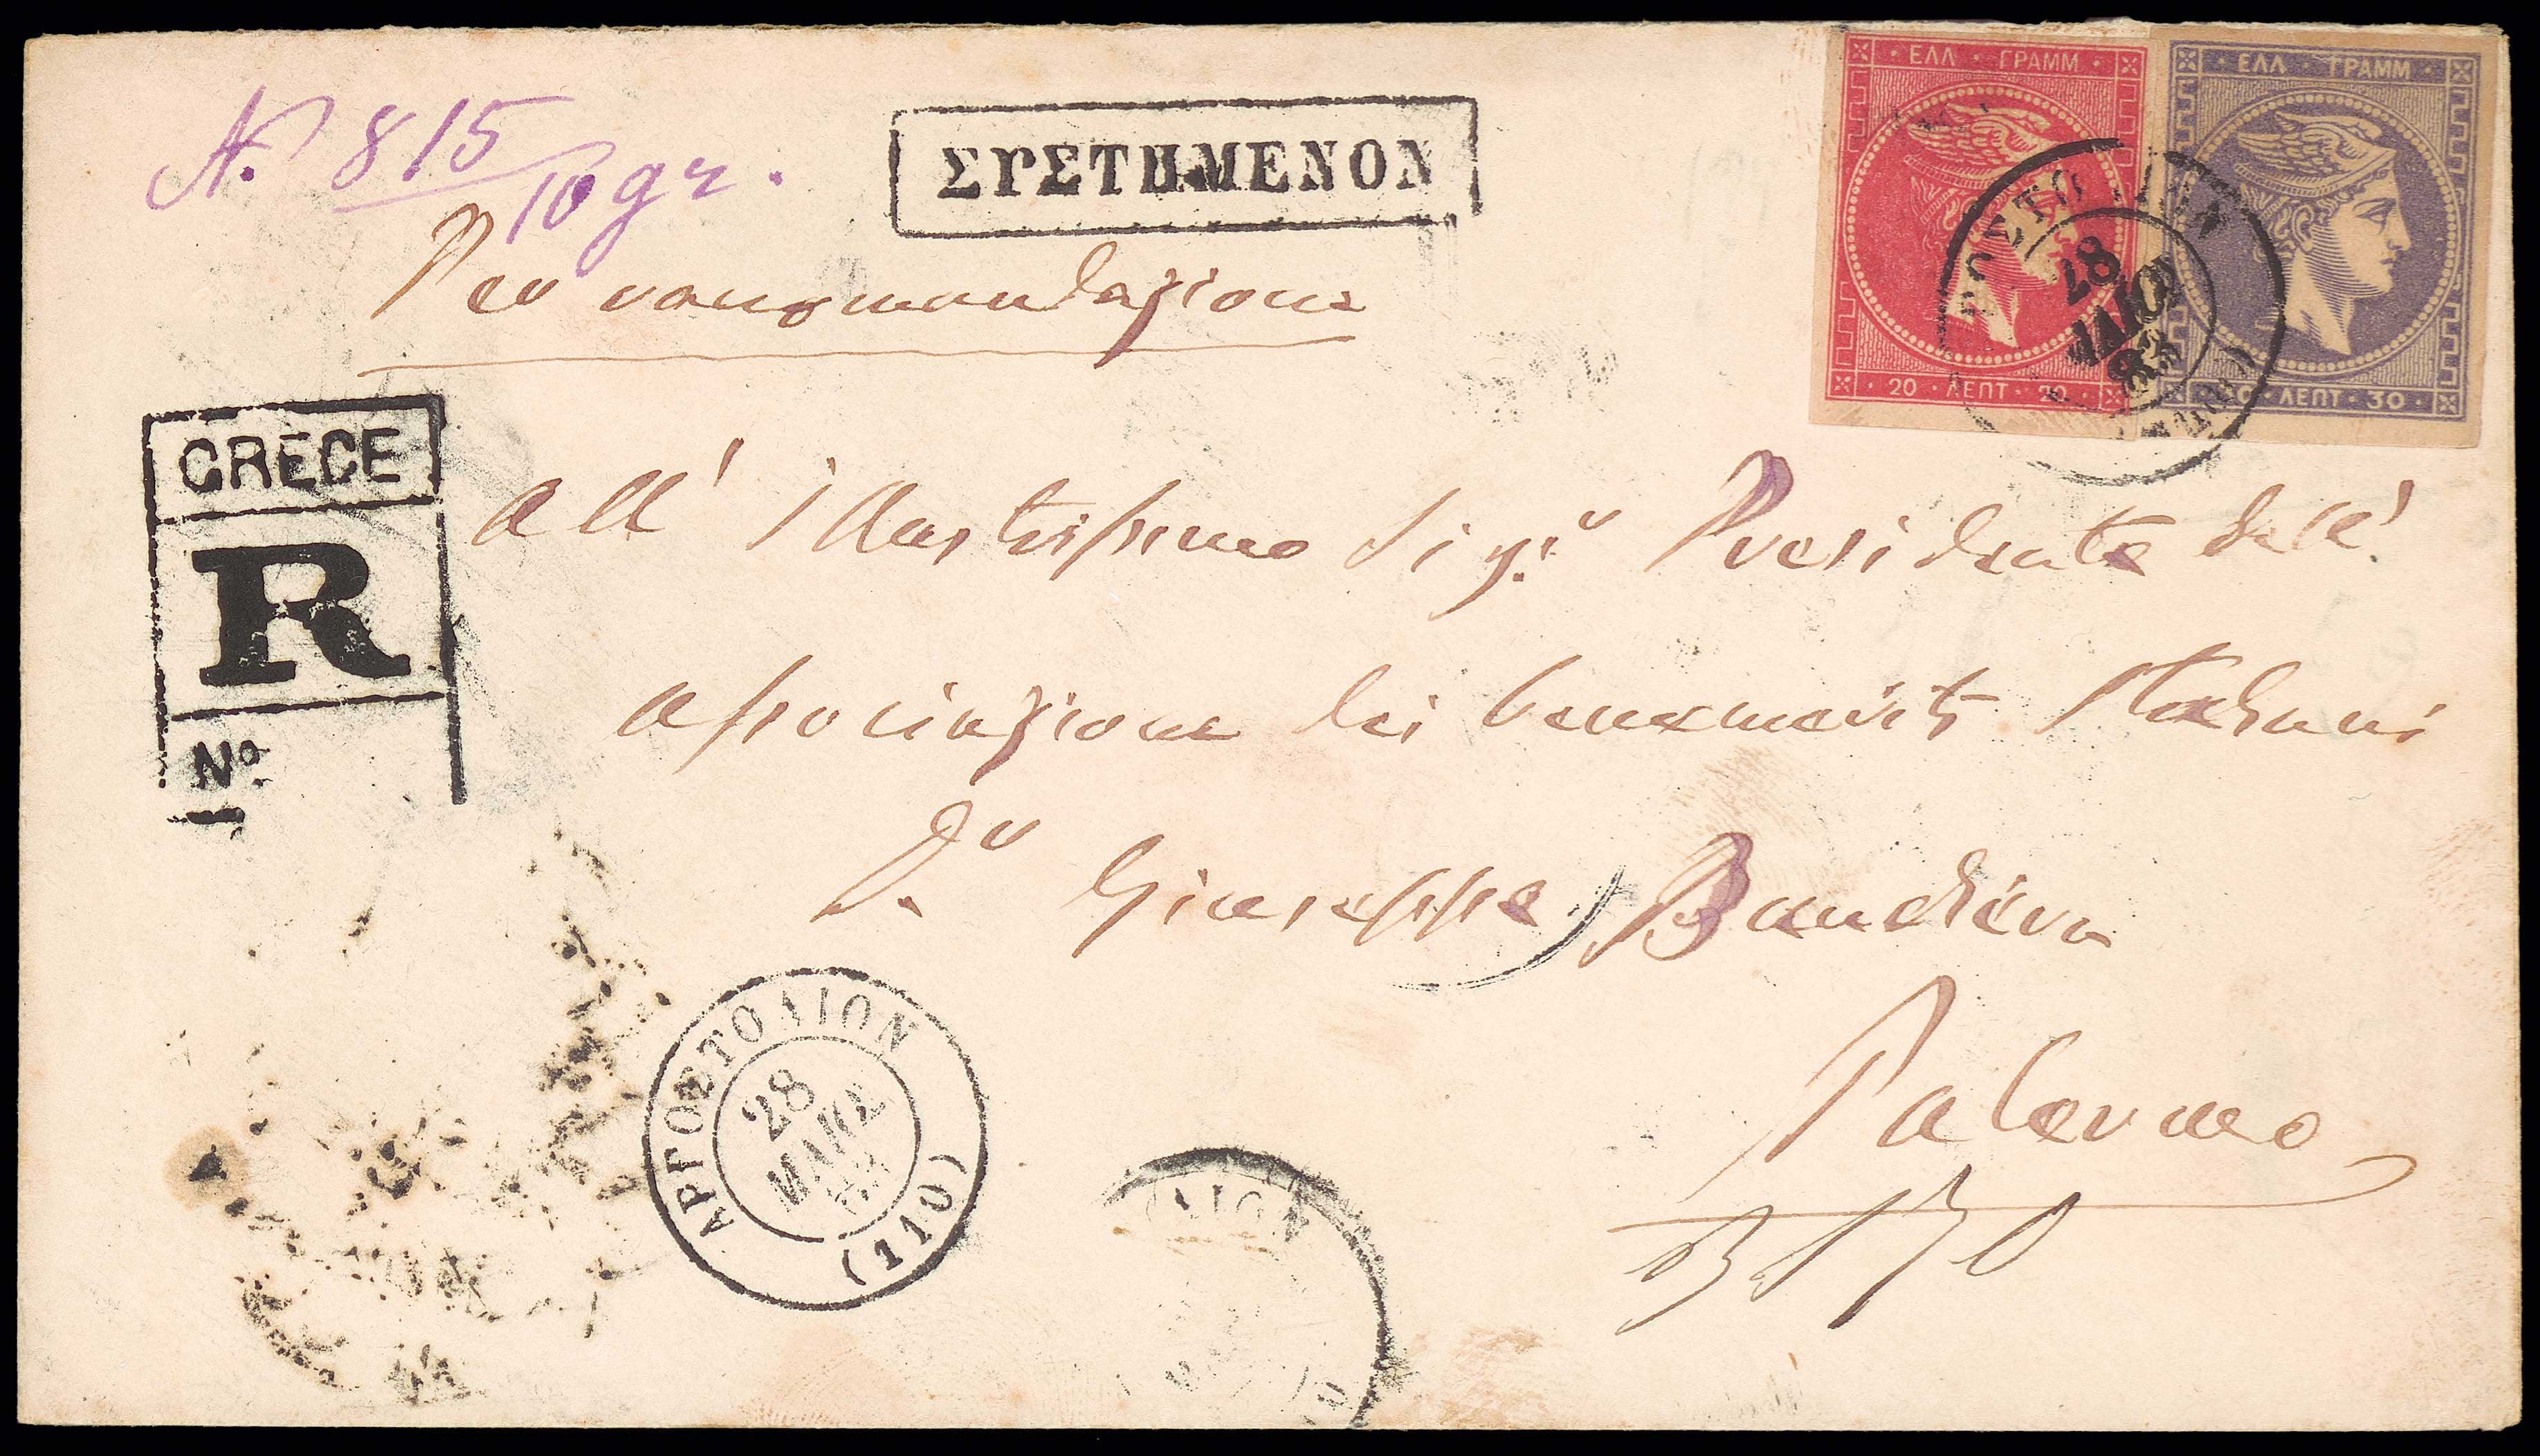 ΕΛΛ · ΓΡΑΜΜ
ΕΛΛ · ΓΡΑΜΜ
20 · ΛΕΠΤ · 20
ΛΕΠΤ · 30
28
ΜΑΙΟΥ
N. 815/10 gr.
ΣΥΣΤΗΜΕΝΟΝ
Per raccomandazione
GRECE
R
No
All' Illustrissimo Sigr Presidente dell'
associazione dei benemeriti Italiani
Dr Giuseppe Bandiera
Palermo
ΑΡΓΟΣΤΟΛΙΟΝ
28
(110)
ΛΙΟΝ